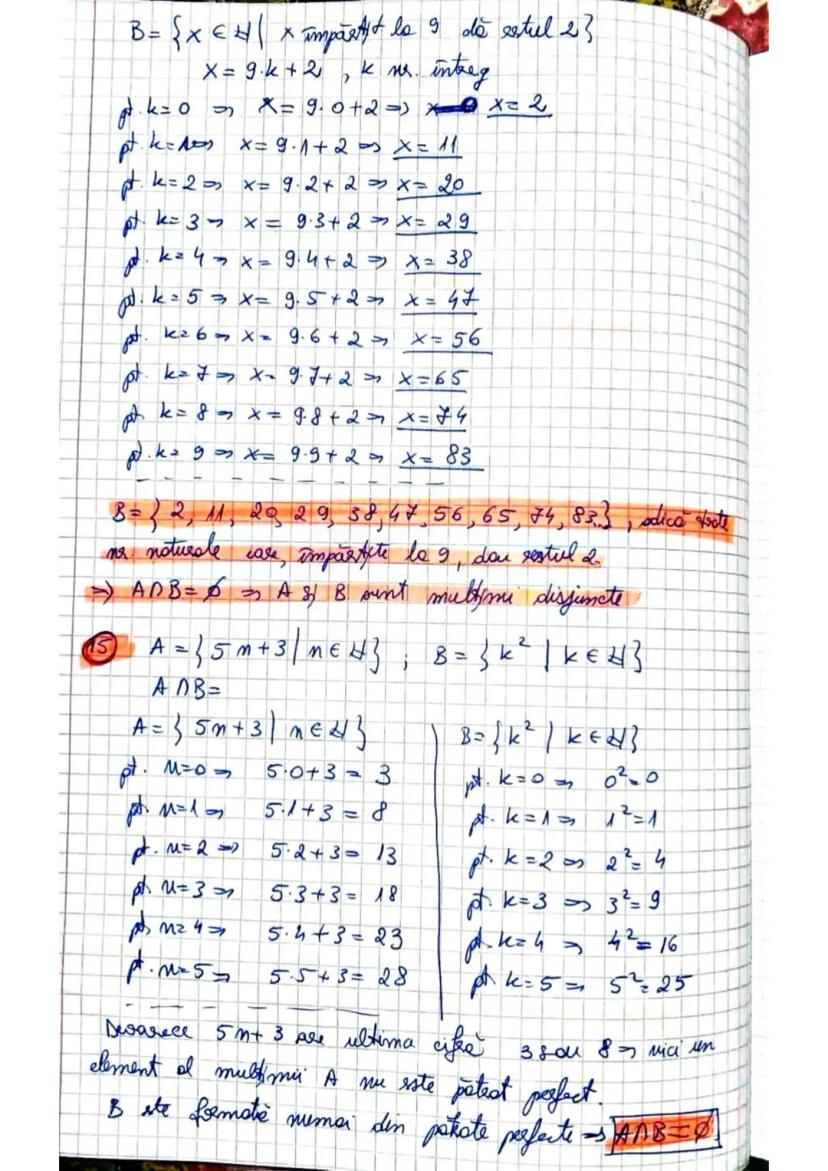 B = {x ∈ ℕ | x împărțit la 9 dă restul 2}
x = 9·k + 2 , k nr. întreg
pt. k = 0 ⇒ x = 9·0+2 ⇒ x = 2
pt. k = 1 ⇒ x = 9·1+2 ⇒ x = 11
pt. k = 2 ⇒ x = 9·2+2 ⇒ x = 20
pt. k = 3 ⇒ x = 9·3+2 ⇒ x = 29
pt. k = 4 ⇒ x = 9·4+2 ⇒ x = 38
pt. k = 5 ⇒ x = 9·5+2 ⇒ x = 47
pt. k = 6 ⇒ x = 9·6+2 ⇒ x = 56
pt. k = 7 ⇒ x = 9·7+2 ⇒ x = 65
pt. k = 8 ⇒ x = 9·8+2 ⇒ x = 74
pt. k = 9 ⇒ x = 9·9+2 ⇒ x = 83
B = {2, 11, 20, 29, 38, 47, 56, 65, 74, 83..}, adică toate
nr. naturale care, împărțite la 9, dau restul 2.
⇒ A∩B = ∅ ⇒ A și B sunt mulțimi disjuncte
15 A = {5n+3 | n ∈ ℕ} ; B = {k² | k ∈ ℕ}
A∩B =
A = {5n+3 | n ∈ ℕ}
pt. n=0 ⇒ 5·0+3 = 3
pt. n=1 ⇒ 5·1+3 = 8
pt. n=2 ⇒ 5·2+3 = 13
pt. n=3 ⇒ 5·3+3 = 18
pt. n=4 ⇒ 5·4+3 = 23
pt. n=5 ⇒ 5·5+3 = 28
B = {k² | k ∈ ℕ}
pt. k=0 ⇒ 0²=0
pt. k=1 ⇒ 1²=1
pt. k=2 ⇒ 2²=4
pt. k=3 ⇒ 3²=9
pt. k=4 ⇒ 4²=16
pt. k=5 ⇒ 5²=25
Deoarece 5n+3 are ultima cifră 3 sau 8 ⇒ nici un
element al mulțimii A nu este pătrat perfect.
B este formată numai din pătrate perfecte ⇒ A∩B=∅